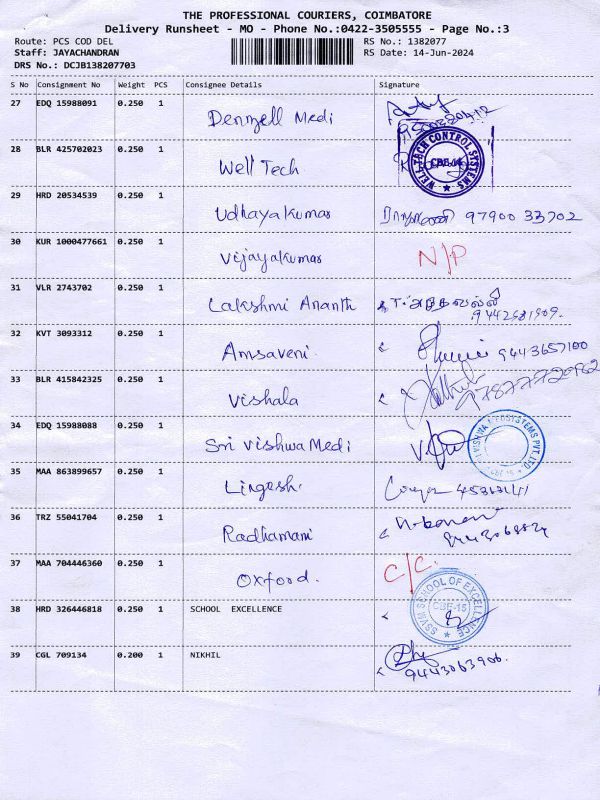 THE PROFESSIONAL COURIERS, COIMBATORE
Delivery Runsheet - MO - Phone No.:0422-3505555 - Page No.:3
Route: PCS COD DEL RS No.: 1382077
Staff: JAYACHANDRAN RS Date: 14-Jun-2024
DRS No.: DCJB138207703
S No Consignment No Weight PCS Consignee Details Signature
27 EDQ 15988091 0.250 1 Denzell Medi
28 BLR 425702023 0.250 1 Well Tech WELL-TECH CONTROL SYSTEMS CBE-14
29 HRD 20534539 0.250 1 Udhayakumar 97900 33702
30 KUR 1000477661 0.250 1 Vijayakumar N/P
31 VLR 2743702 0.250 1 Lakshmi Ananth
32 KVT 3093312 0.250 1 Amsaveni 9443657100
33 BLR 415842325 0.250 1 Vishala
34 EDQ 15988088 0.250 1 Sri Vishwa Medi
35 MAA 863899657 0.250 1 Lingesh.
36 TRZ 55041704 0.250 1 Radhamani
37 MAA 704446360 0.250 1 Oxford. C/C.
38 HRD 326446818 0.250 1 SCHOOL EXCELLENCE SSVM SCHOOL OF EXCELLENCE CBE-15
39 CGL 709134 0.200 1 NIKHIL 9443063906.